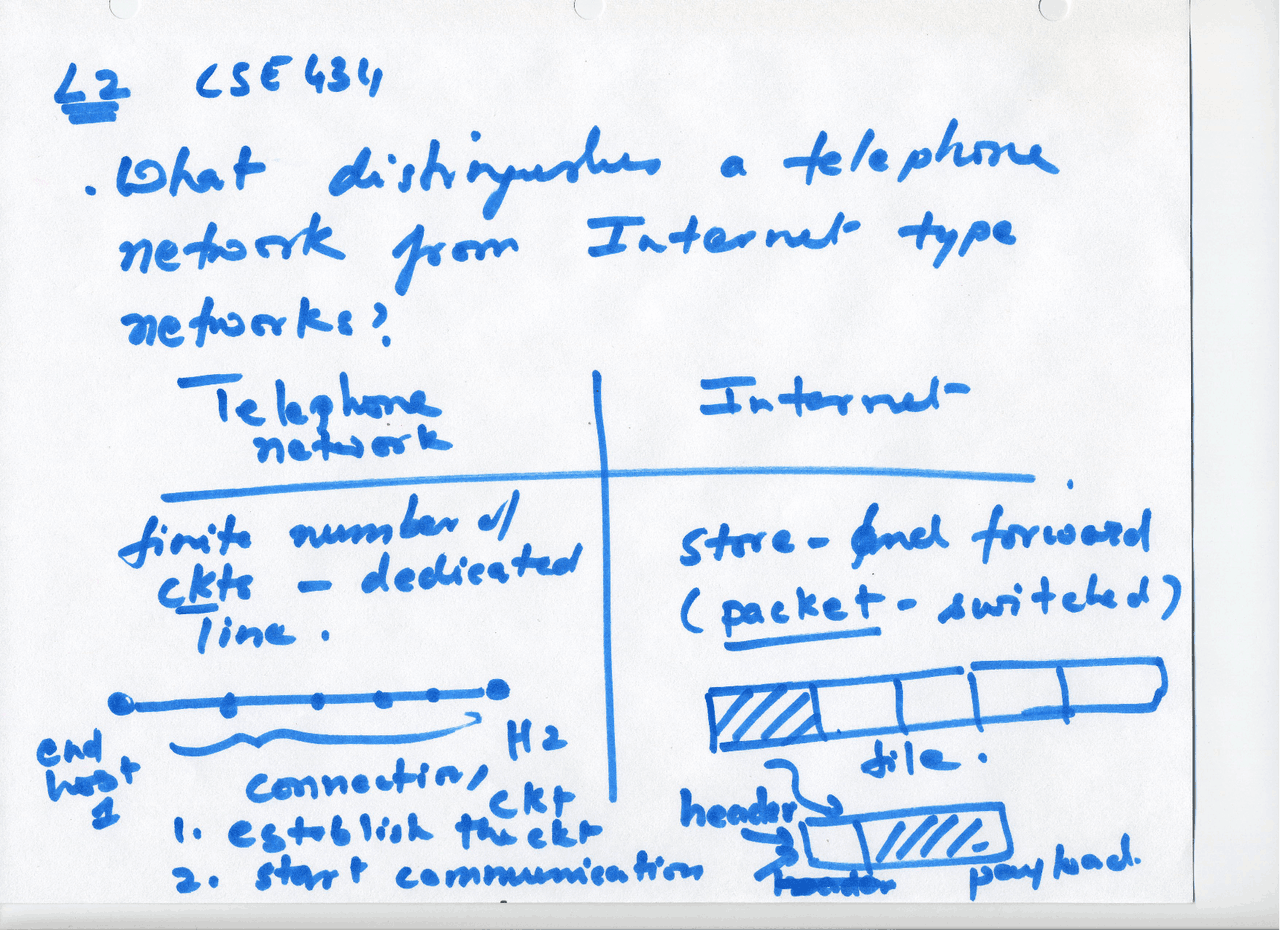 L2 CSE 434
. What distinguishes a telephone
network from Internet type
networks?
Telephone
network
Internet
finite number of
ckts - dedicated
line.
store - and forward
(packet - switched)
end
host
1
H2
connection/
ckt
1. establish the ckt
2. start communication
file.
header
header
payload.